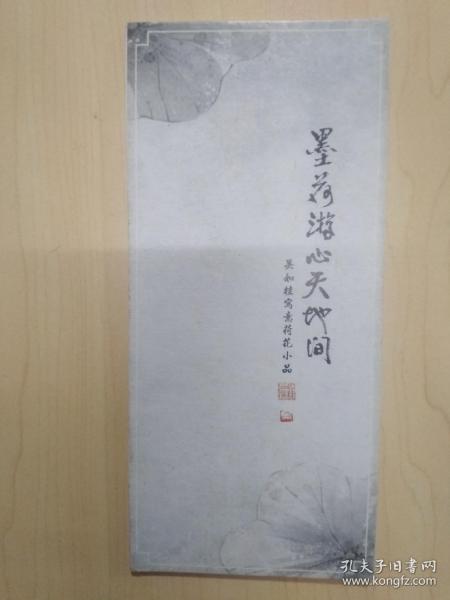 墨荷游心天地间
吴知桂写意荷花小品
孔夫子旧书网
www.kongfz.com